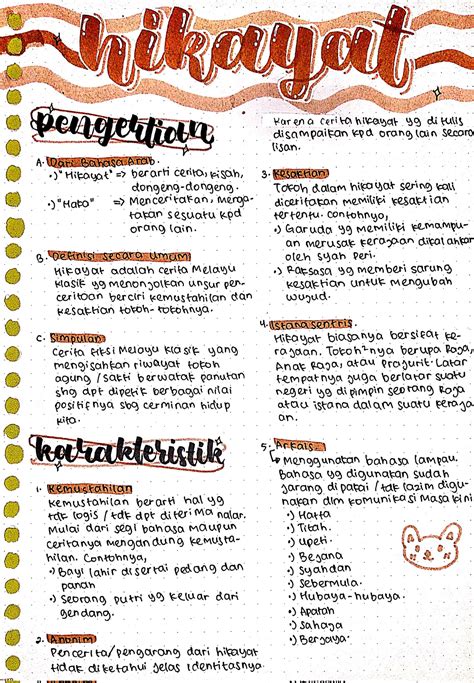 hikayat
pengertian
A. Dari Bahasa Arab.
•) "Hikayat" => berarti cerita, kisah,
dongeng-dongeng.
•) "Haka" => Menceritakan, Menga-
takan sesuatu kpd
orang lain.
B. Definisi secara umum
Hikayat adalah cerita Melayu
klasik yg menonjolkan unsur pen-
ceritaan berciri kemustahilan dan
kesaktian tokoh-tokohnya.
C. Simpulan
Cerita fiksi Melayu klasik yang
mengisahkan riwayat tokoh
agung / sakti berwatak panutan
shg dpt dipetik berbagai nilai
positifnya sbg cerminan hidup
kita.
karakteristik
1. Kemustahilan
Kemustahilan berarti hal yg
tdk logis / tdk dpt diterima nalar.
Mulai dari segi bahasa maupun
ceritanya mengandung kemusta-
hilan. Contohnya,
•) Bayi lahir disertai pedang dan
panah
•) Seorang putri yg keluar dari
gendang.
2. Anonim
Pencerita/pengarang dari hikayat
tidak diketahui jelas identitasnya.
Karena cerita hikayat yg ditulis
disampaikan kpd orang lain secara
lisan.
3. Kesaktian
Tokoh dalam hikayat sering kali
diceritakan memiliki kesaktian
tertentu. Contohnya,
•) Garuda yg memiliki kemampu-
an merusak kerajaan dikalahkan
oleh syah peri.
•) Raksasa yg memberi sarung
kesaktian untuk mengubah
wujud.
4. Istana sentris.
Hikayat biasanya bersifat ke-
rajaan. Tokoh²nya berupa Raja,
Anak Raja, atau Prajurit. Latar
tempatnya juga berlatar suatu
negeri yg dipimpin seorang Raja
atau istana dalam suatu keraja-
an.
5. Arkais.
Menggunakan bahasa lampau.
Bahasa yg digunakan sudah
jarang dipakai / tdk lazim digu-
nakan dlm komunikasi Masa kini
•) Hatta
•) Titah.
•) upeti.
•) Bejana
•) Syahdan
•) Sebermula.
•) Hubaya-hubaya.
•) Apatah
•) Sahaya
•) Berjaya.